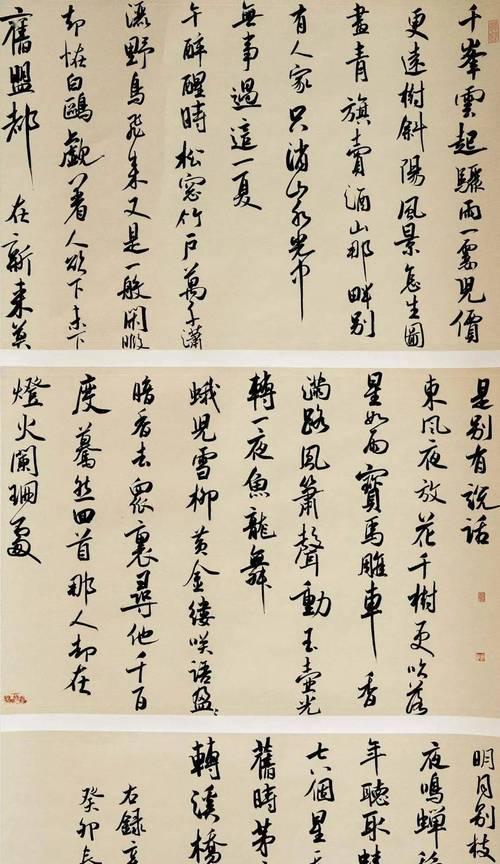 千峯雲起驟雨一霎児價
更遠樹斜陽風景怎生圖
畫青旗賣酒山那畔別
有人家只消山水光中
無事過這一夏
午醉醒時松窓竹戸萬千瀟
灑野鳥飛来又是一般閑暇
却怪白鷗覷著人欲下未下
舊盟都在新来莫
是別有說話
東風夜放花千樹更吹落
星如雨寶馬雕車香
滿路鳳簫聲動玉壺光
轉一夜魚龍舞
蛾兒雪柳黃金縷咲語盈〻
暗香去衆裏尋他千百
度驀然回首那人却在
燈火闌珊處
明月別枝
夜鳴蟬
年聽取
七八個星
舊時茅
轉溪橋
右錄
癸卯